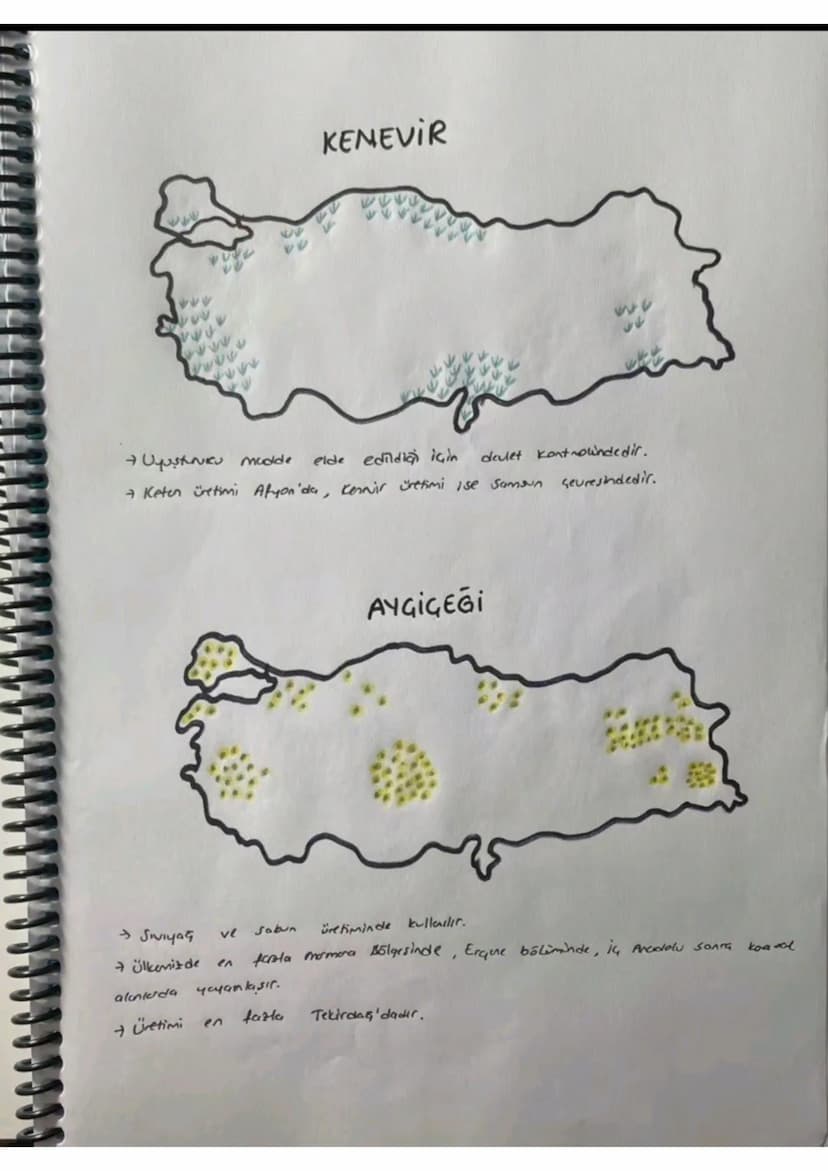 KENEVİR
→ Uyuşturucu madde elde edildiği için devlet kontrolündedir.
→ Keten üretimi Afyon'da, kenevir üretimi ise Samsun çevresindedir.
AYÇİÇEĞİ
→ Sıvıyağ ve sabun üretiminde kullanılır.
→ Ülkemizde en fazla Marmara Bölgesinde, Ergene bölümünde, iç Anadolu sonra
alanlarda yaygınlaşır.
→ Üretimi en fazla Tekirdağ'dadır.